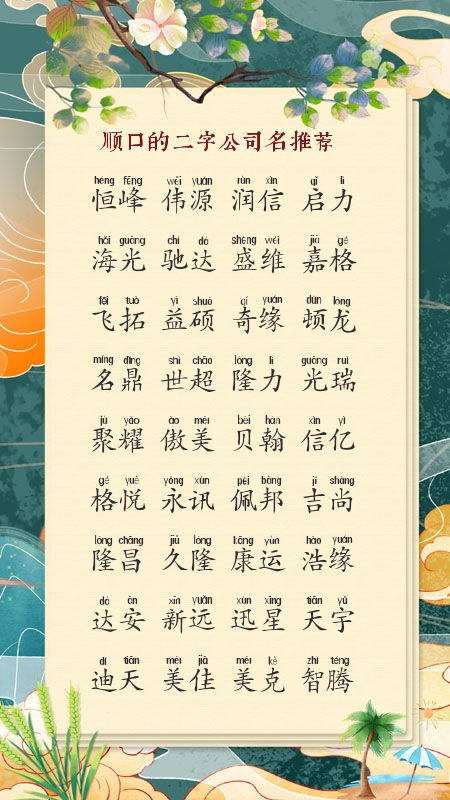 顺口的二字公司名推荐
héng fēng wěi yuán rùn xìn qǐ lì
恒峰 伟源 润信 启力
hǎi guāng chí dá shèng wéi jiā gé
海光 驰达 盛维 嘉格
fēi tuò yì shuò qí yuán dùn lóng
飞拓 益硕 奇缘 顿龙
míng dǐng shì chāo lóng lì guāng ruì
名鼎 世超 隆力 光瑞
jù yào ào měi bèi hàn xìn yì
聚耀 傲美 贝翰 信亿
gé yuè yǒng xùn pèi bāng jí shàng
格悦 永讯 佩邦 吉尚
lóng chāng jiǔ lóng kāng yùn hào yuán
隆昌 久隆 康运 浩缘
dá ān xīn yuǎn xùn xīng tiān yǔ
达安 新远 迅星 天宇
dí tiān měi jiā měi kè zhì téng
迪天 美佳 美克 智腾